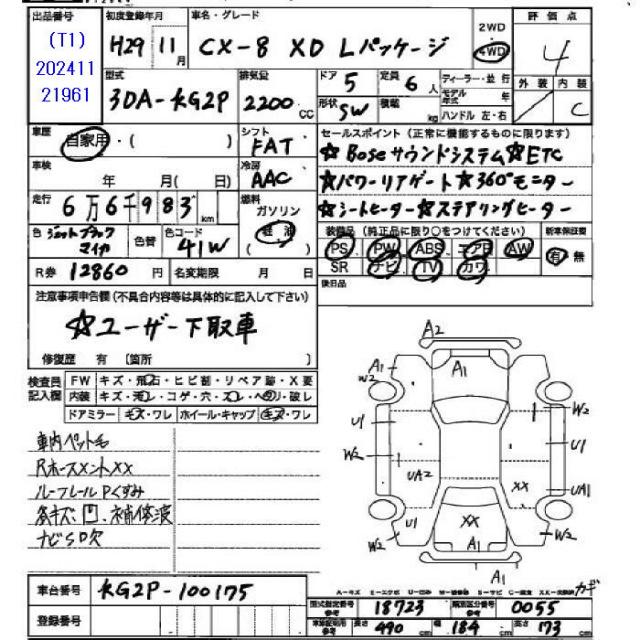 出品番号 初度登録年月 車名・グレード 2WD 評価点
(T1) H29 11月 CX-8 XD Lパッケージ 4WD 4
202411
21961
型式 排気量 ドア 5 定員 6人 ディーラー・並行 外装 内装
3DA-KG2P 2200cc 形状 SW 積載 kg モデル年式 年 C
ハンドル 左・右
車歴 自家用・( ) シフト FAT セールスポイント(正常に機能するものに限ります)
☆Boseサウンドシステム☆ETC
車検 年 月( 日) 冷房 AAC ☆パワーリアゲート☆360°モニター
走行 6万6千983km 燃料 ガソリン 軽油 ☆シートヒーター☆ステアリングヒーター
色 ジェットブラックマイカ 色替 色コード 41W 装備品(純正品に限り○をつけてください) 新車保証書
PS PW ABS エアB AW 有・無
R券 12860円 名変期限 月 日 SR ナビ TV カワ
後日品
注意事項申告欄(不具合内容等は具体的に記入して下さい)
☆ユーザー下取車
修復歴 有(箇所 )
検査員記入欄 FW キズ・飛石・ヒビ割・リペア跡・X要
内装 キズ・汚レ・コゲ・穴・スレ・ヘタリ・破レ
ドアミラー キズ・ワレ ホイール・キャップ キズ・ワレ
車内ペット毛
Rホースメント××
ルーフレールPくすみ
各キズ凹、補修痕
ナビSD欠
A2
A1 A1
W2 W2
U1 U1
W2
UA2 ×× UA1
U1 ×× W2
A1
A1
A-キズ E-エクボ U-凹み W-補修跡 S-サビ C-腐食 カギ
車台番号 KG2P-100175
型式指定番号 参考 18723 類別区分番号 参考 0055
登録番号 長さ 490cm 幅 184cm 高さ 173cm